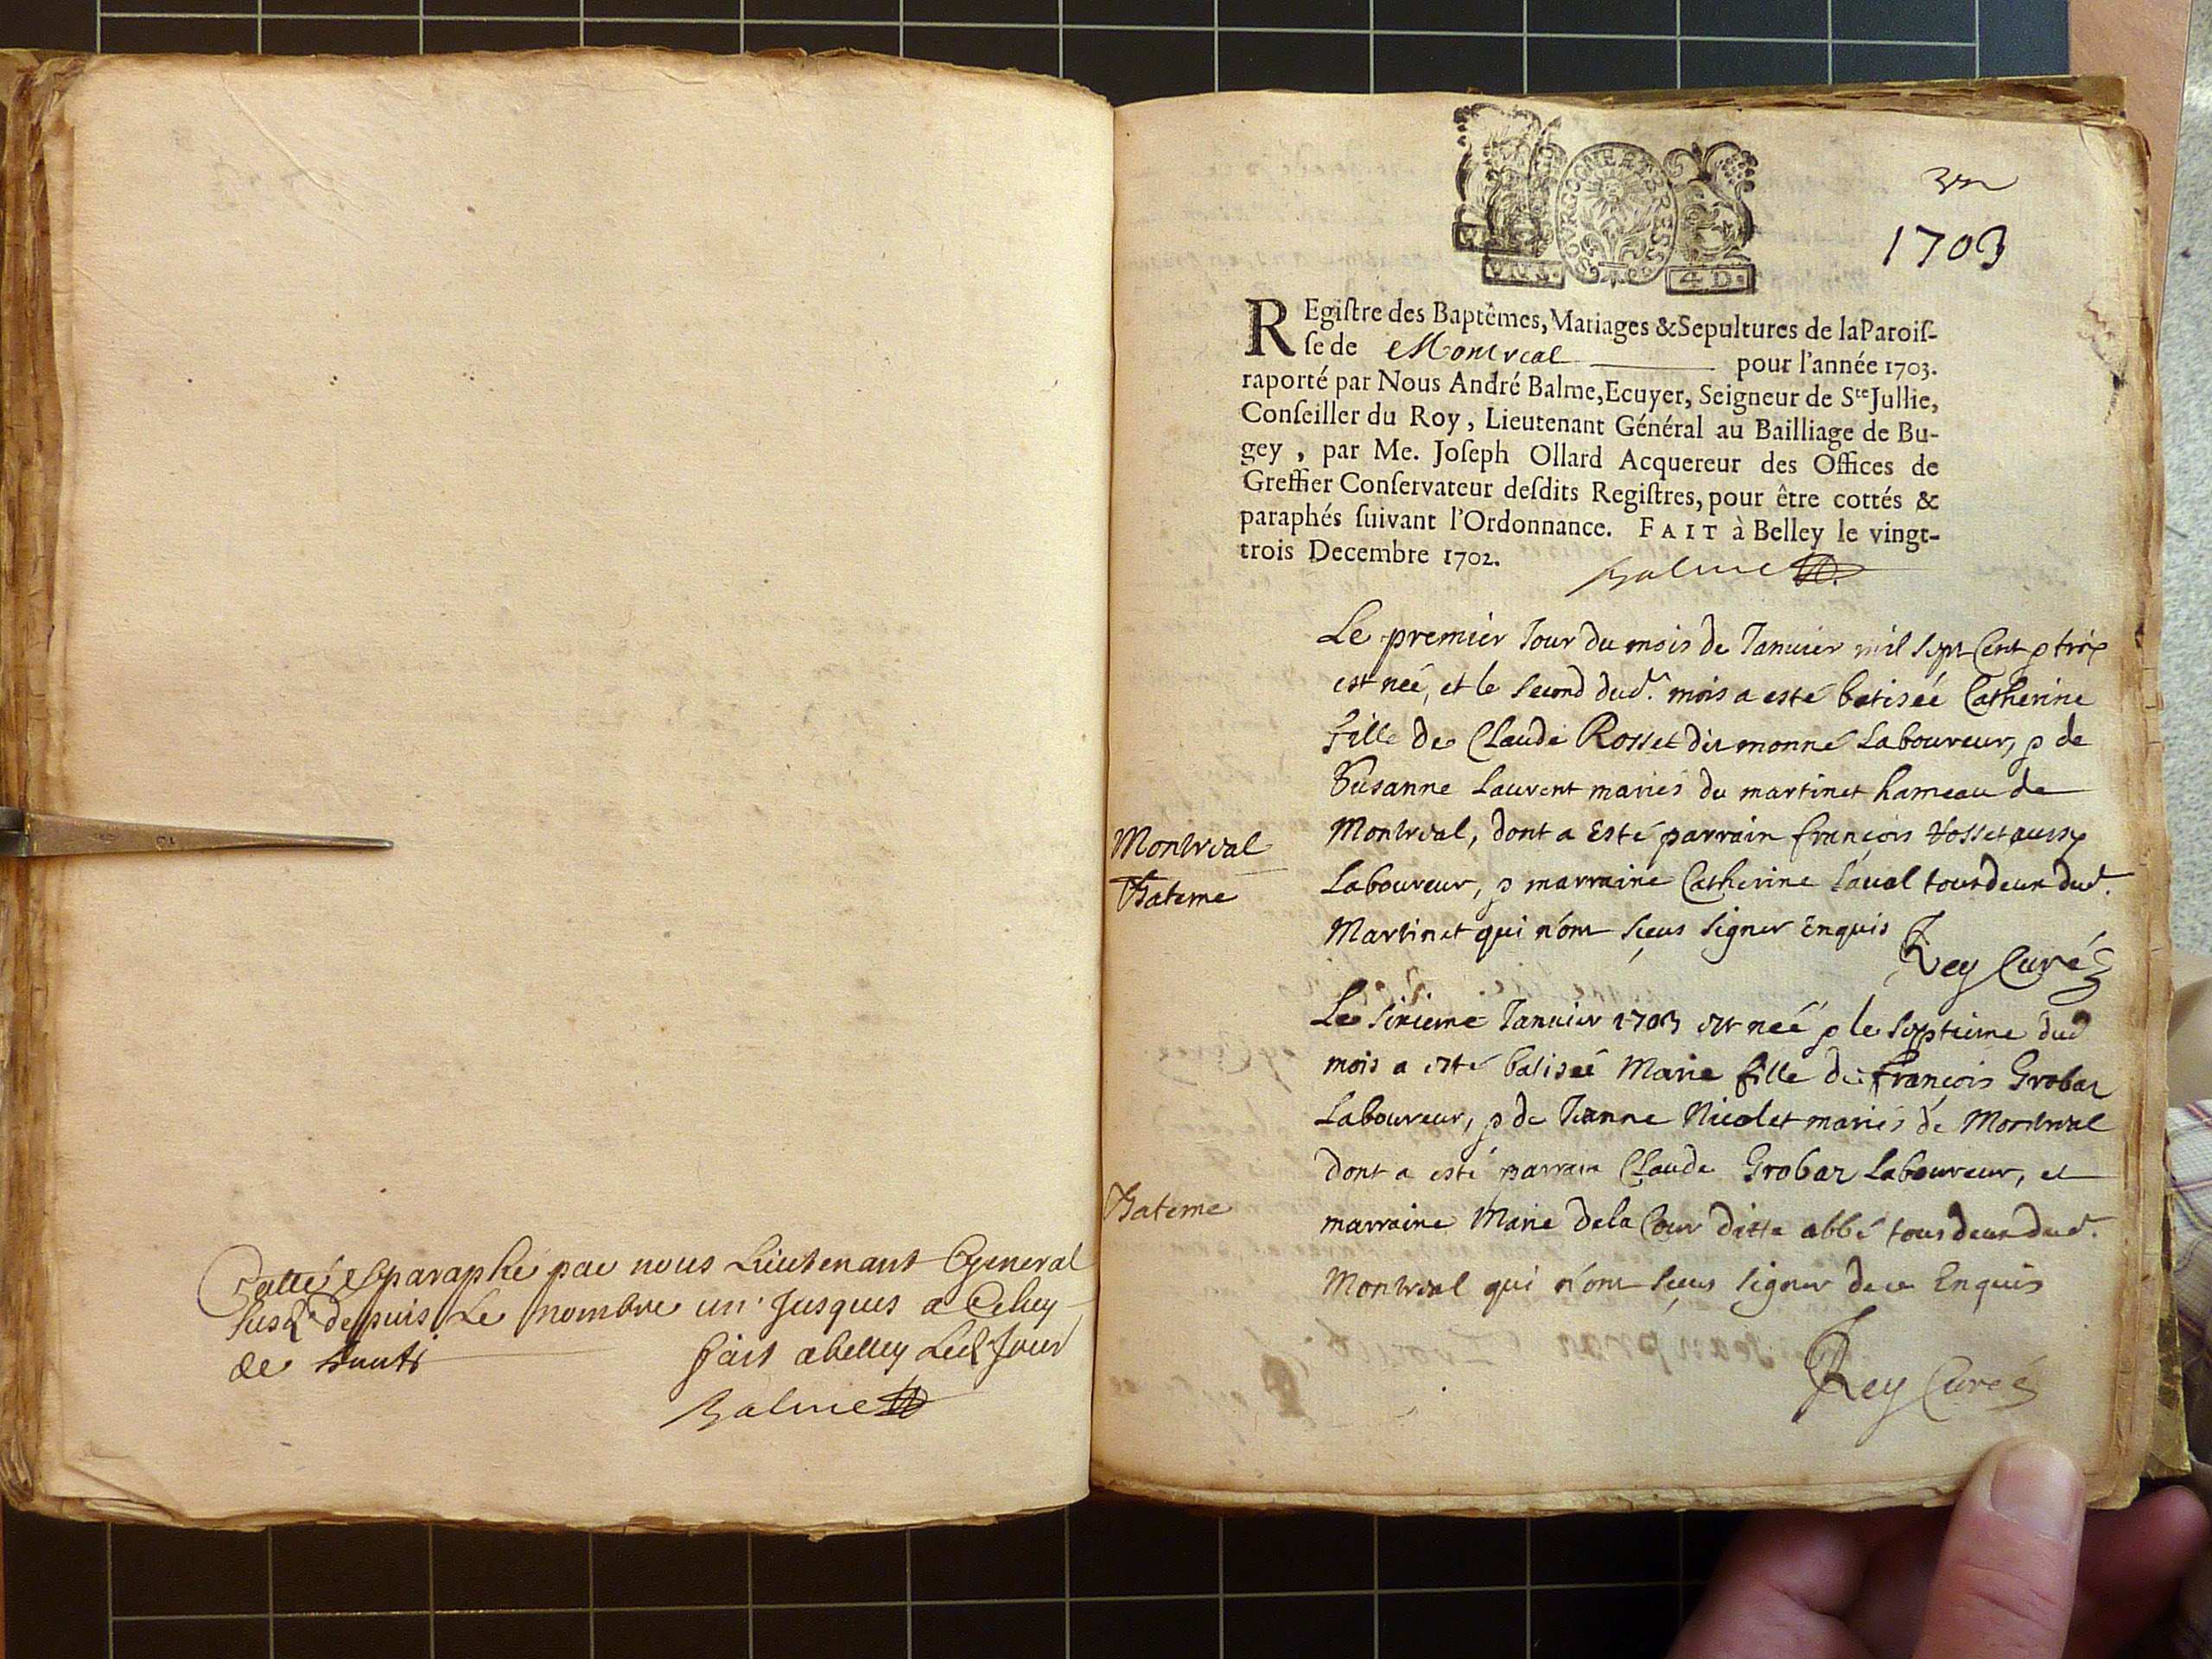 Cotté & paraphé par nous Lieutenant General
susd. depuis Le nombre un jusques a Celuy
de huit
fait a belley Led. Jour
Balme
BOURGOGNE ET BRESSE
4 D.
1703
REgiſtre des Baptêmes, Mariages & Sepultures de la Paroiſ-
ſe de Montreal pour l'année 1703.
raporté par Nous André Balme, Ecuyer, Seigneur de Ste Jullie,
Conſeiller du Roy, Lieutenant Général au Bailliage de Bu-
gey, par Me. Joſeph Ollard Acquereur des Offices de
Greffier Conſervateur deſdits Regiſtres, pour être cottés &
paraphés ſuivant l'Ordonnance. FAIT à Belley le vingt-
trois Decembre 1702.
Balme
Le premier Jour du mois de Januier mil sept Cent & trois
est née, et le second dud. mois a esté batisée Catherine
fille de Claude Rosset dit monné Laboureur, & de
Susanne Laurent mariés du martinet hameau de
Montreal
Montreal, dont a Esté parrain françois Rosset aussy
Bateme
Laboureur, & marraine Catherine Laual tous deux dud.
Martinet qui n'ont sçeus signer Enquis
Rey Curé
Le sixieme Januier 1703 est née & le septieme dud
mois a esté batisée Marie fille de françois Grobaz
Laboureur, & de Jeanne Nicolet mariés de Montreal
dont a esté parrain Claude Grobaz Laboureur, et
Bateme
marraine Marie Dela Cour ditte abbé tous deux dud.
Montreal qui n'ont sçeus signer de ce Enquis
Rey Curé